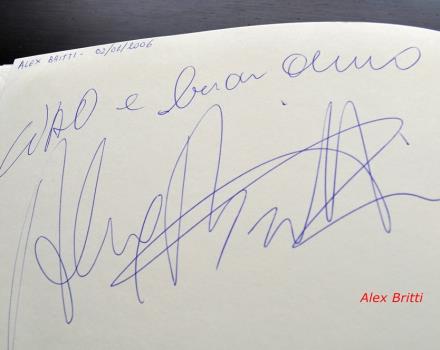 ALEX BRITTI - 02/02/2006
CIAO e buon anno
Alex Britti
Alex Britti